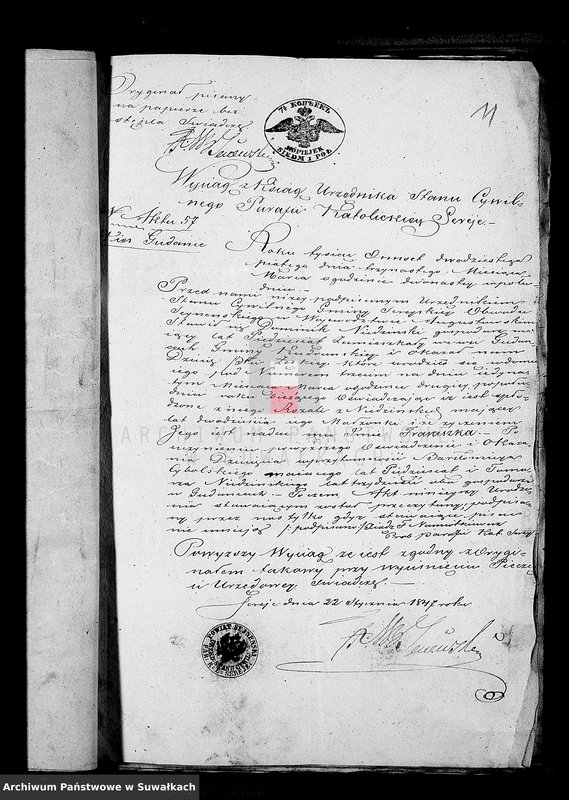 Oryginał pisany
na papierze bez
stępla Świadczę
7½ КОПѢЕКЪ
KOPIEJEK
SIEDM I PÓŁ
11
Wyciąg z Xsiąg Urzędnika Stanu Cywil-
nego Parafii Katolickiey Sereje.-
N Aktu 57
Wieś Gudanie
Roku tysiąc Osmset dwudziestego
piątego dnia trzynastego Miesiąca
Marca o godzinie dwonastey w połu-
dnie
Przed nami niżey podpisanym Urzędnikiem
Stanu Cywilnego Gminy Sereyskiey Obwodu
Seyneńskiego w Woiewództwie Augustowskim
Stawił się Dominik Niedzinski gospodarz ma-
iący lat Piędziesiąt Zamieszkały we wsi Gudan-
cach Gminy i okazał nam
Dziecię Płci Żeńskiej które urodziło się w domu
iego pod Numerem trzecim na dniu iedynas-
tym Miesiąca Marca o godzinie drugiej popołu-
dniu roku bieżącego Oświadczaiąc iż iest spło-
dzone z niego Rozalii z Niedzinskich maiącey
lat dwadzieścia iego Małżonki i że życzeniem
Jego iest nadać mu Imie Franciszka - Po
uczynieniu powyższego Oświadczenia i Okaza-
nia Dziecięcia w przytomności Bartłomieja
Cybulskiego maiącego lat Piędziesiąt i Toma-
sza Niedzinskiego lat trzydzieści oba gospodarzy
w Gudancach - Poczem Akt ninieyszy Urodze-
nia stawaiącym został przeczytany, podpisa-
ny przez nas tylko gdyż stawaiący pisać
nie umieją /: podpisano:/ Xiądz
Prob Parafii Kat. Serey
Powyższy Wyciąg że iest zgodny z Orygi-
nałem takowy przy wyciśnięciu Pieczę-
ci Urzędowey Świadczę. -
Sereje dnia 22 Stycznia 1847 roku
ARCHIWUM PAŃSTWOWE
Archiwum Państwowe w Suwałkach